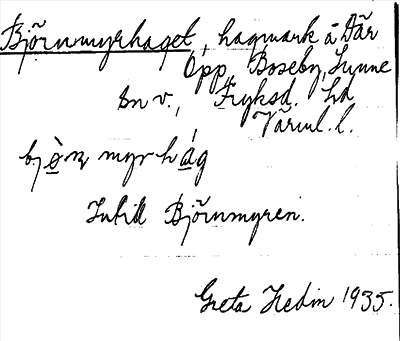 Björnmyrhaget, hagmark å Där
Opp, Boseby, Lysne
sn v., Fryksd. hd
Värml. l.
bjɵ̀ɳ myrhág
Intill Björnmyren.
Greta Hedin 1935.